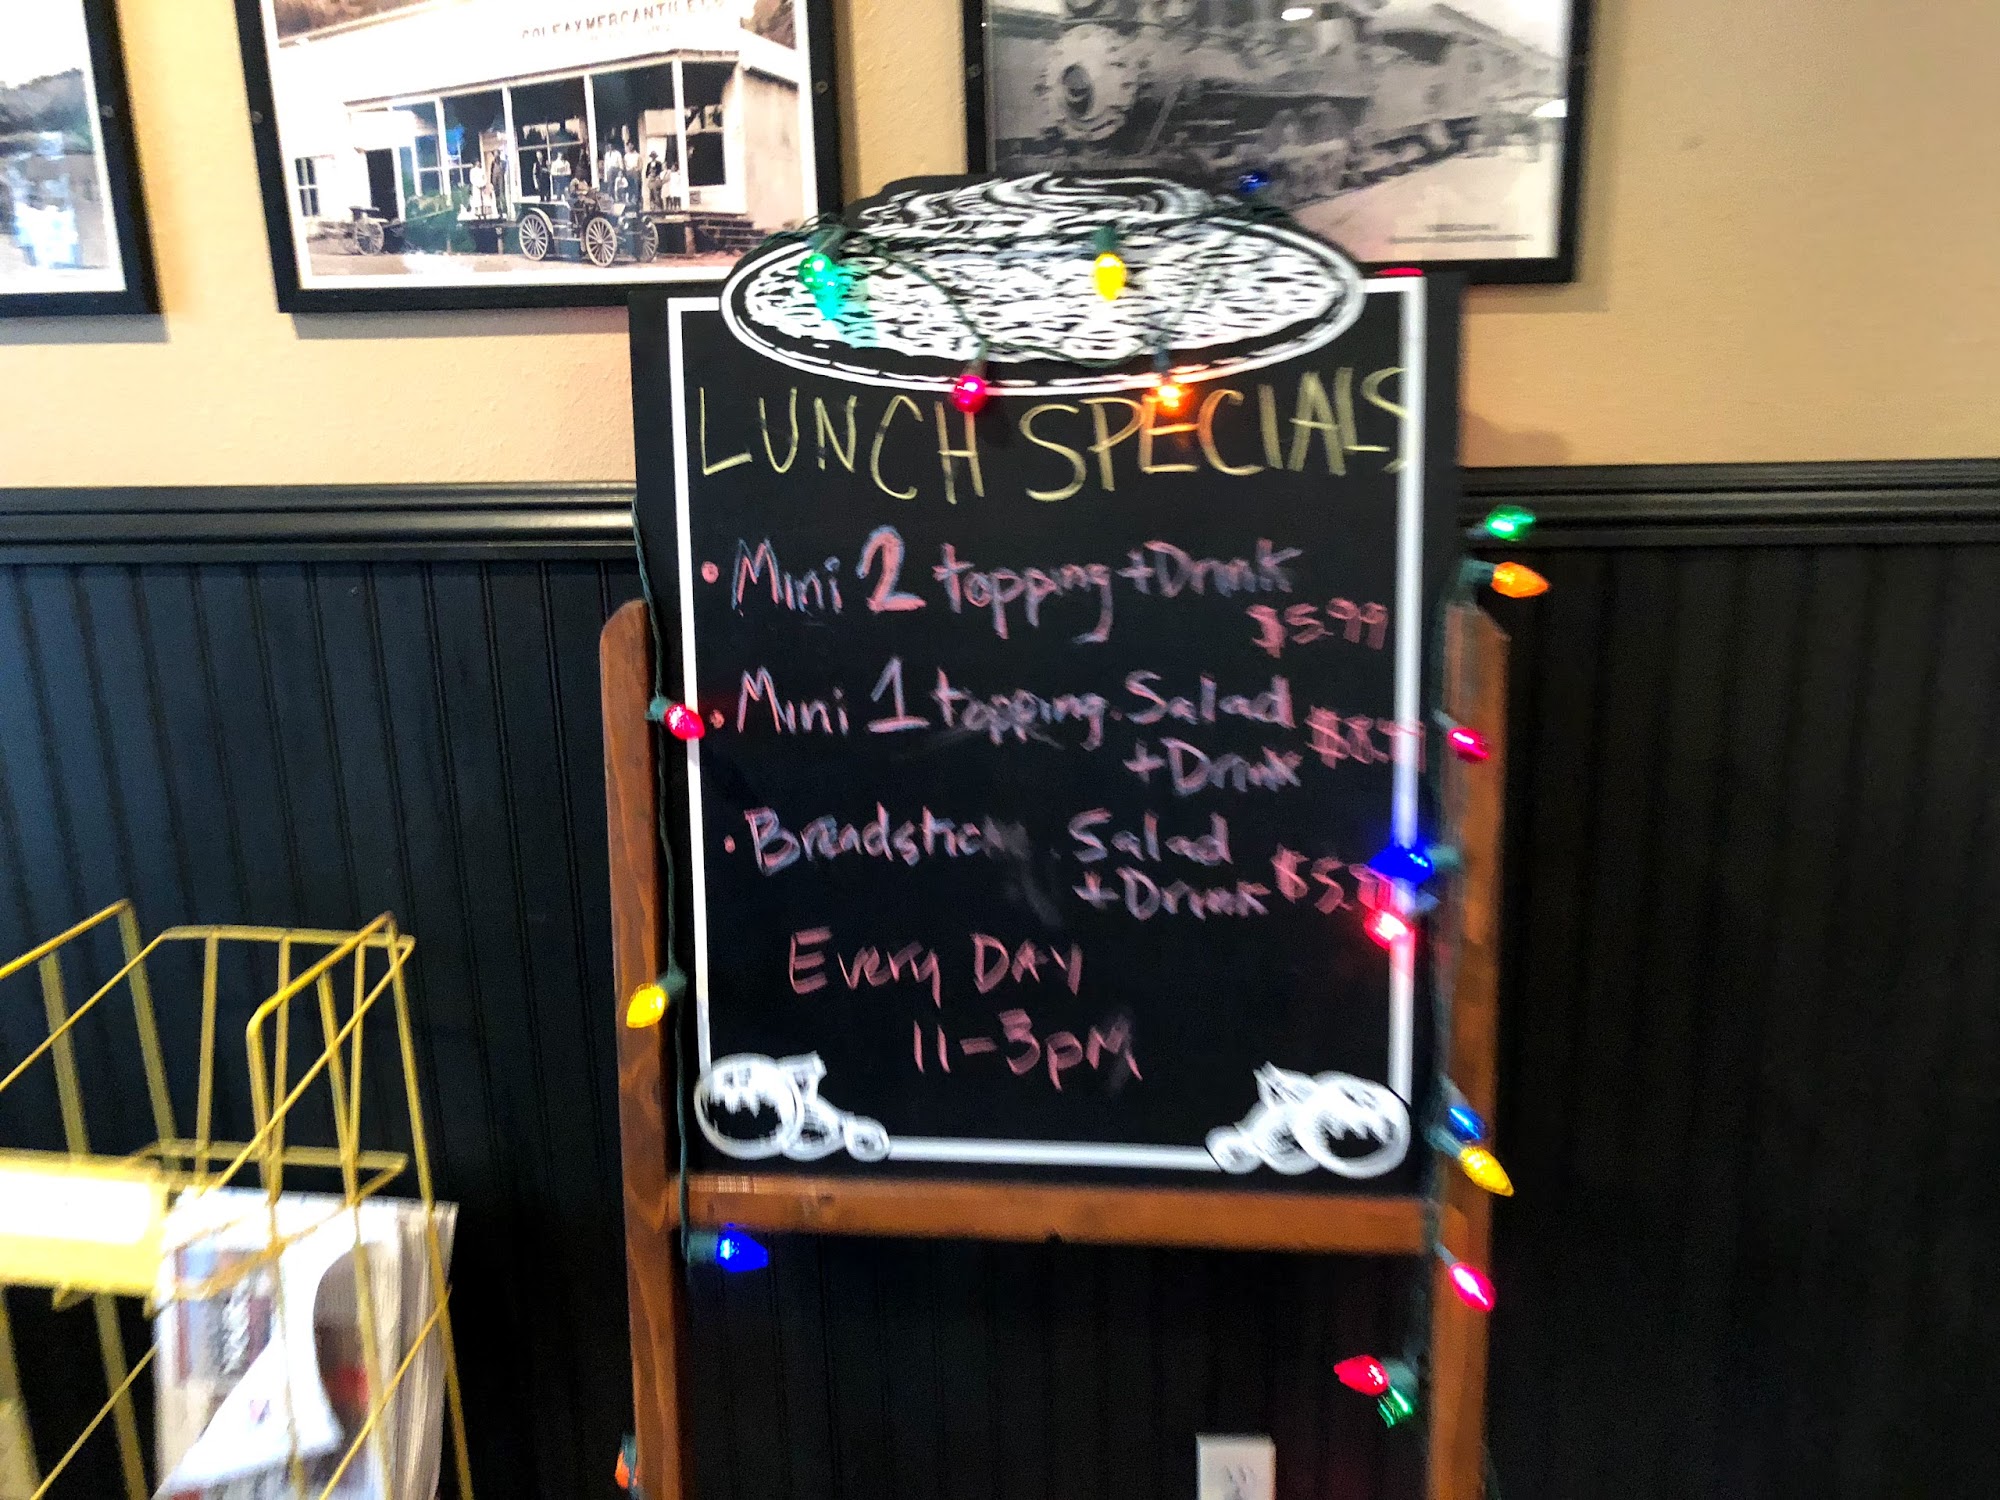 COLFAX MERCANTILE
LUNCH SPECIALS
• Mini 2 topping + Drink
$5.99
• Mini 1 topping. Salad
+ Drink $8.99
• Breadstick . Salad
+ Drink
Every DAY
11-3pm